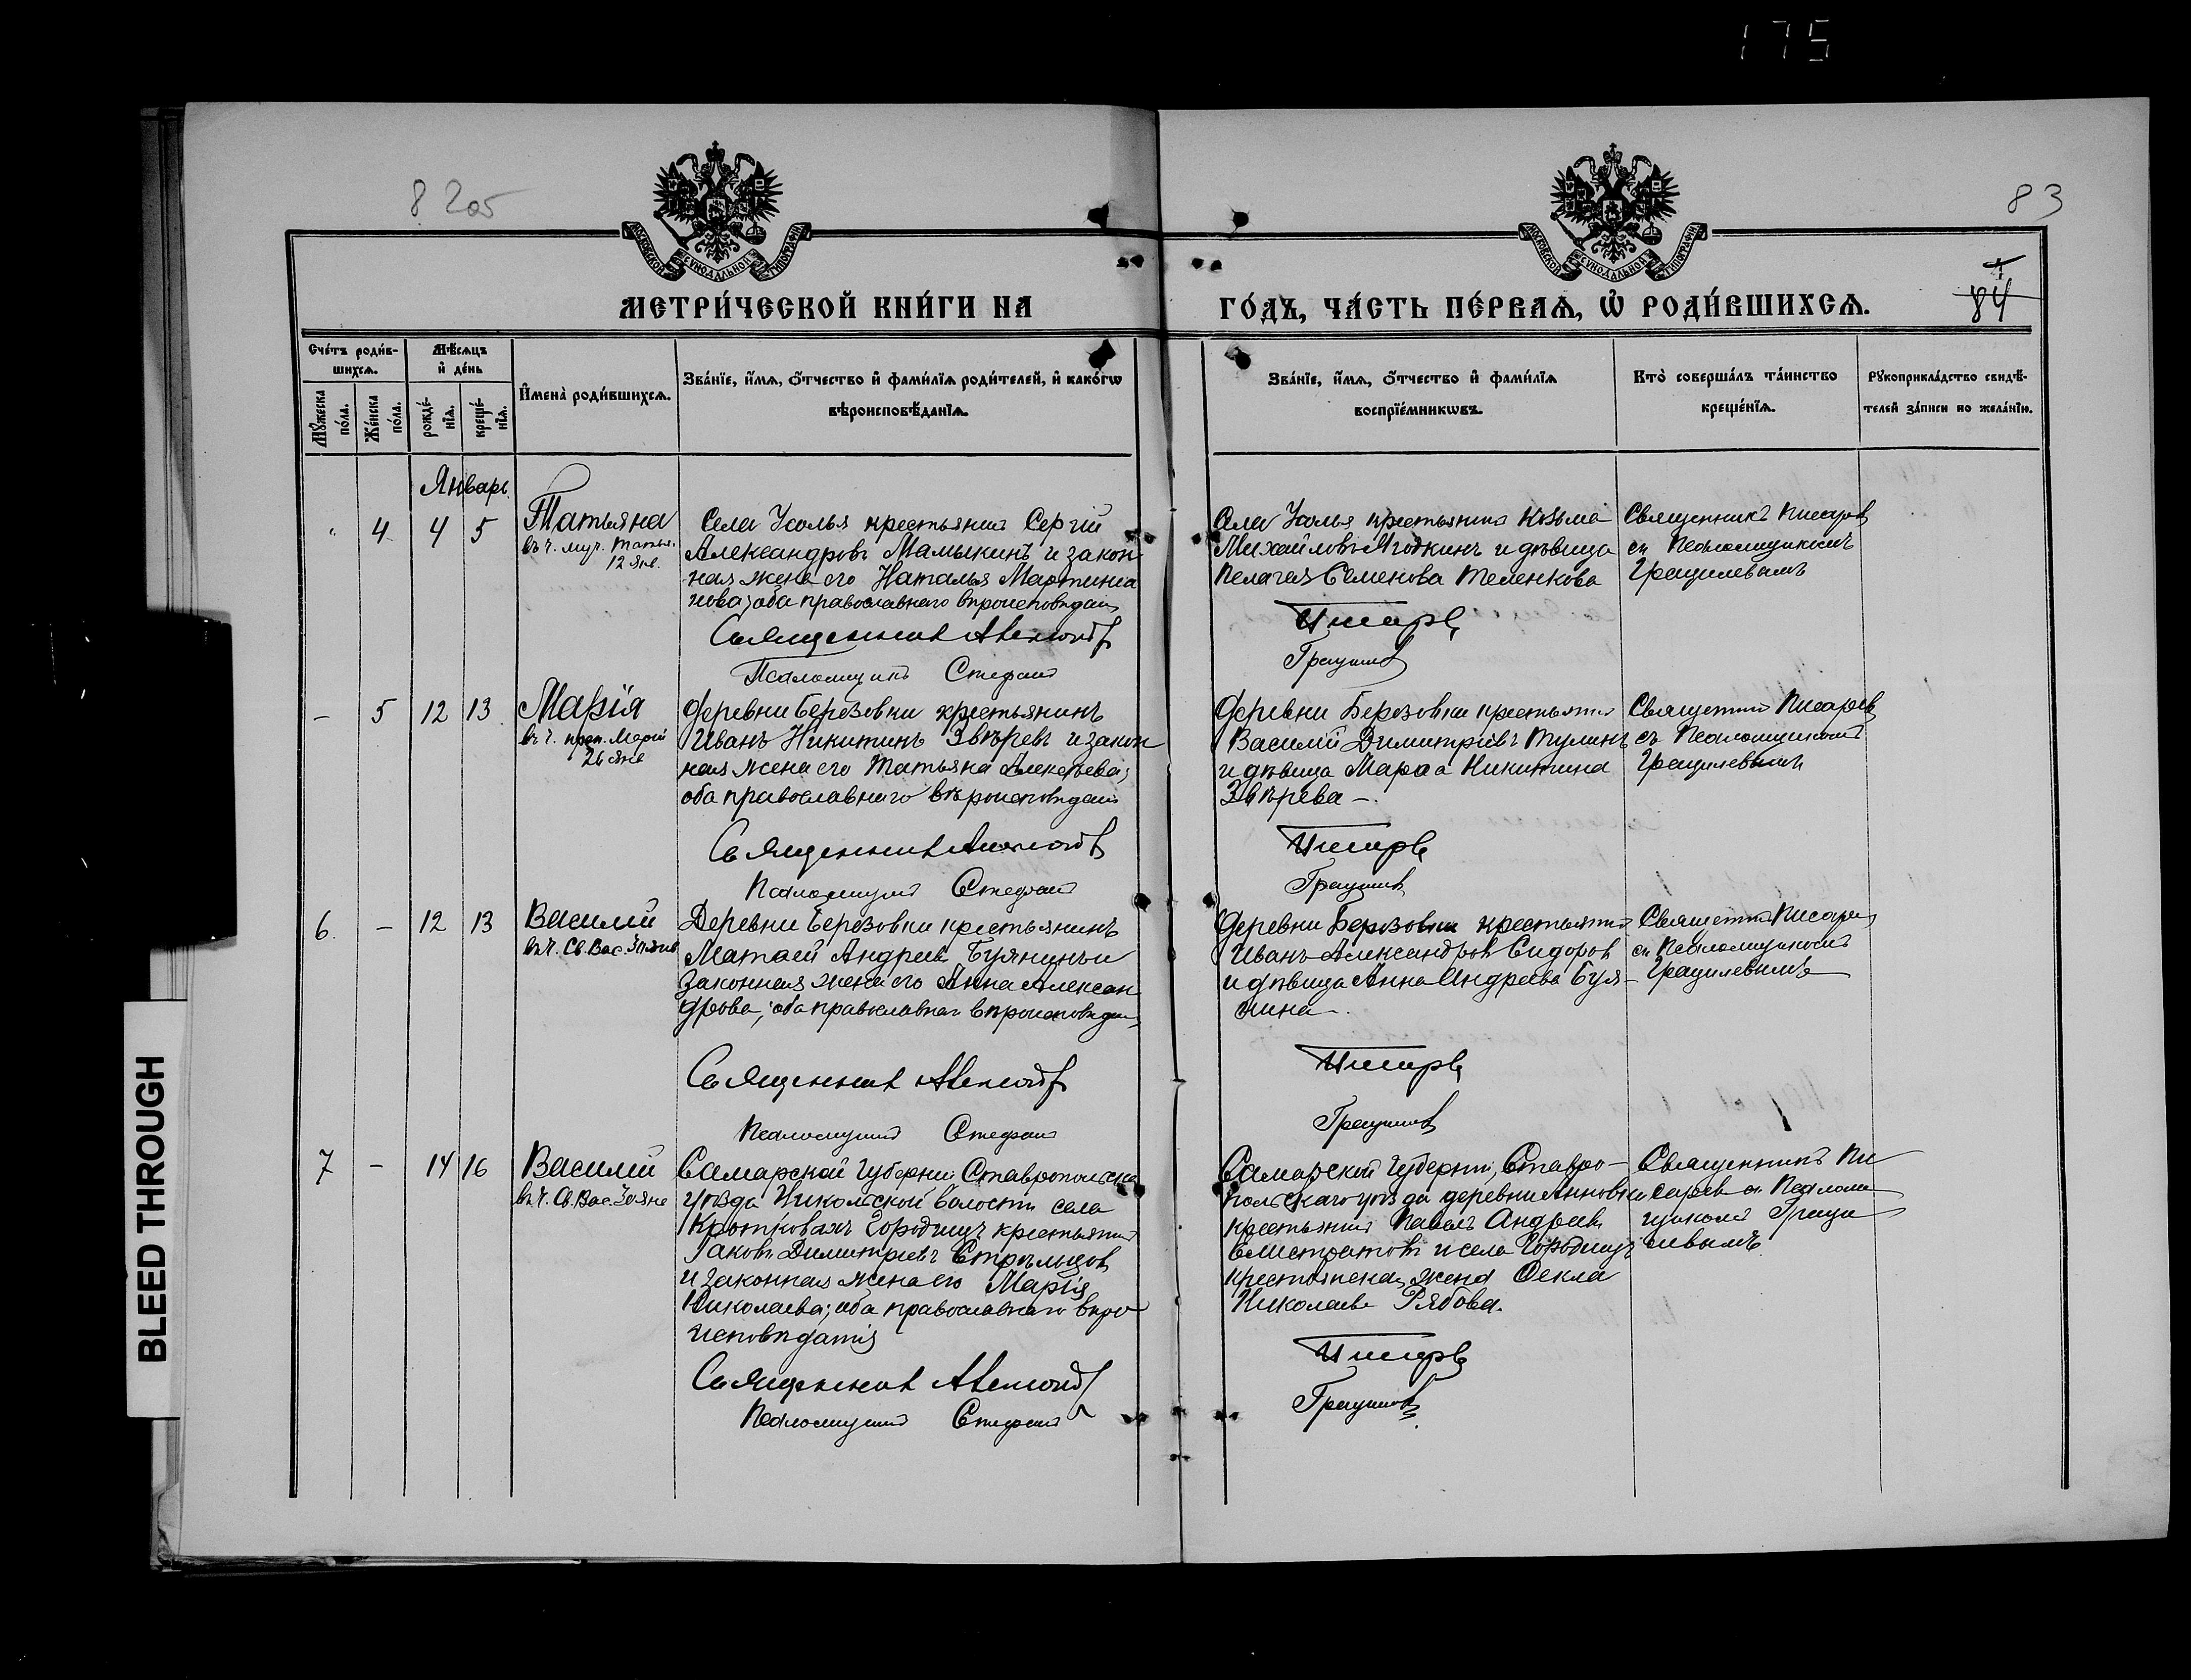 175
8 205
83
84
МОСКОВСКОЙ СѴНОДАЛЬНОЙ ТИПОГРАФІИ
МОСКОВСКОЙ СѴНОДАЛЬНОЙ ТИПОГРАФІИ
МЕТРИ́ЧЕСКОЙ КНИ́ГИ НА
ГО́ДЪ, ЧА́СТЬ ПЕ́РВАѦ, Ѽ РОДИ́ВШИХСѦ.
Сче́тъ роди́вшихсѧ.
Мѣ́сѧцъ и҆ де́нь
Мꙋ́жеска по́ла.
Же́нска по́ла.
рожде́нїѧ.
креще́нїѧ.
И҆мена̀ роди́вшихсѧ.
Зва́нїе, и҆́мѧ, ѻ҆́тчество и҆ фами́лїѧ роди́телей, и҆ како́гѡ
вѣроисповѣ́данїѧ.
Зва́нїе, и҆́мѧ, ѻ҆́тчество и҆ фами́лїѧ
воспрїе́мникѡвъ.
Кто̀ соверша́лъ та́инство
креще́нїѧ.
Рꙋкоприкла́дство свидѣ́телей за́писи по жела́нїю.
Январь
4 4 5
Татьяна
въ ч. муч. Татья.
12 янв.
Села Усолья крестьянинъ Сергій
Александровъ Мамыкинъ и закон
ная жена его Наталья Мартина
нова; оба православнаго вѣроисповѣдан
Священникъ
Псаломщикъ Стефан
Села Усолья крестьянинъ Козьма
Михайловъ Ягодкинъ и дѣвица
Пелагея Семенова Теленкова
Писарев
Грацилев
Священникъ Писарев
съ Псаломщикомъ
Грацилевымъ
- 5 12 13
Марія
въ ч. преп. Маріи
26 янв
Деревни Березовки крестьянинъ
Иванъ Никитинъ Звѣревъ и закон
ная жена его Татьяна Алексѣева;
оба православнаго вѣроисповѣдан
Священникъ
Псаломщикъ Стефан
Деревни Березовки крестьянинъ
Василій Димитріевъ Тулинъ
и дѣвица Марѳа Никитина
Звѣрева -.
Писарев
Грацилев
Священникъ Писарев
съ Псаломщикомъ
Грацилевымъ
6. - 12 13
Василій
въ ч. Св. Вас. 30 янв
Деревни Березовки крестьянинъ
Матѳей Андреев Бурянинъ и
законная жена его Анна Алексан
дрова; оба православнаго вѣроисповѣдан
Священникъ
Псаломщикъ Стефан
Деревни Березовки крестьянинъ
Иванъ Александров Сидоров
и дѣвица Анна Андреева Буря-
нина -.
Писарев
Грацилев
Священникъ Писарев
съ Псаломщикомъ
Грацилевымъ
7 - 14 16
Василій
въ ч. Св. Вас. 30 янв
Самарской Губерніи Ставропольска
уѣзда Никольской волости села
Городищъ крестьянинъ
Іаковъ Димитріевъ Стрѣльцов
и законная жена его Марія
Николаева; оба православнаго вѣро
исповѣданія
Священникъ
Псаломщикъ Стефан
Самарской Губерніи, Ставро-
польскаго уѣзда деревни Анновки
крестьянинъ Павелъ Андреев
и села Городищъ
крестьянская жена Ѳекла
Николаева Рябова.
Писарев
Грацилев
Священникъ Пи
сарев съ Псалом
щикомъ Граци
левымъ
BLEED THROUGH